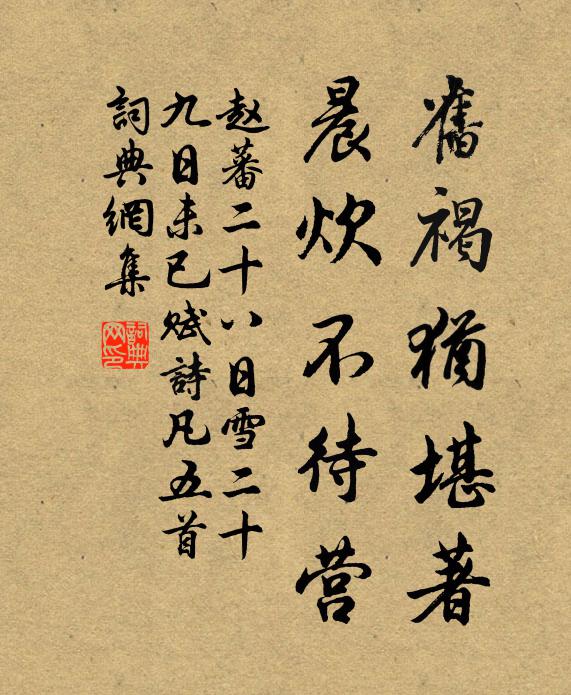 舊褐猶堪著
晨炊不待营
赵蕃二十八日雪二十
九日未已赋詩凡五首
詞典網集
詞典
网印